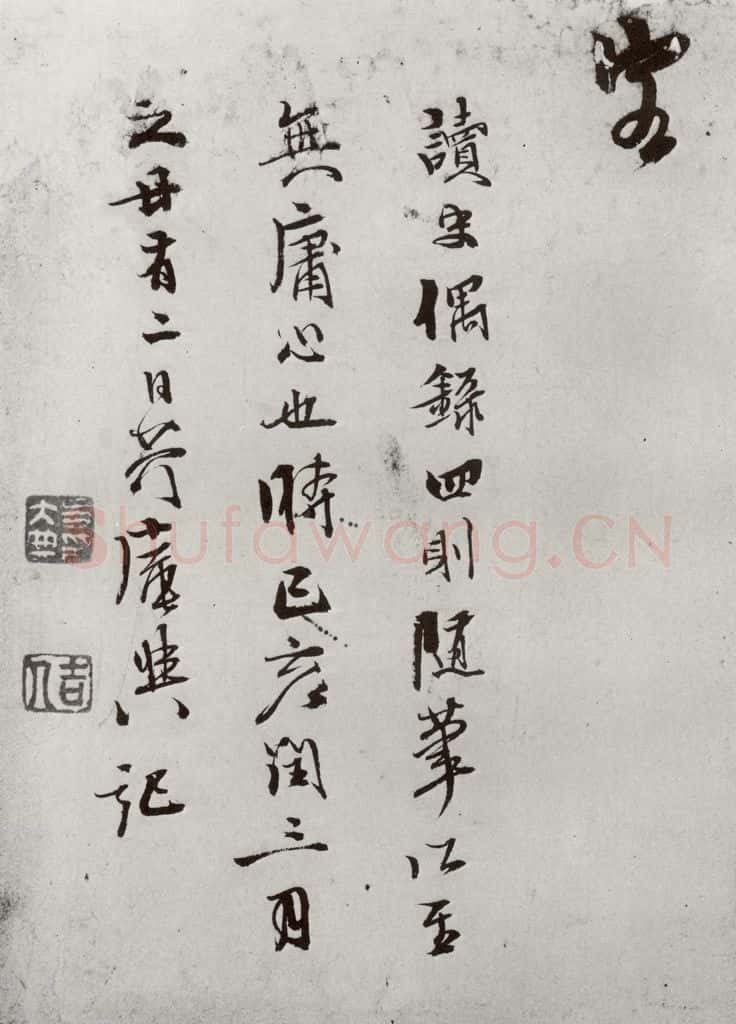 讀史偶錄四則隨筆以至
無庸心也時己亥閏三月
之廿有二日記
Shufawang.CN